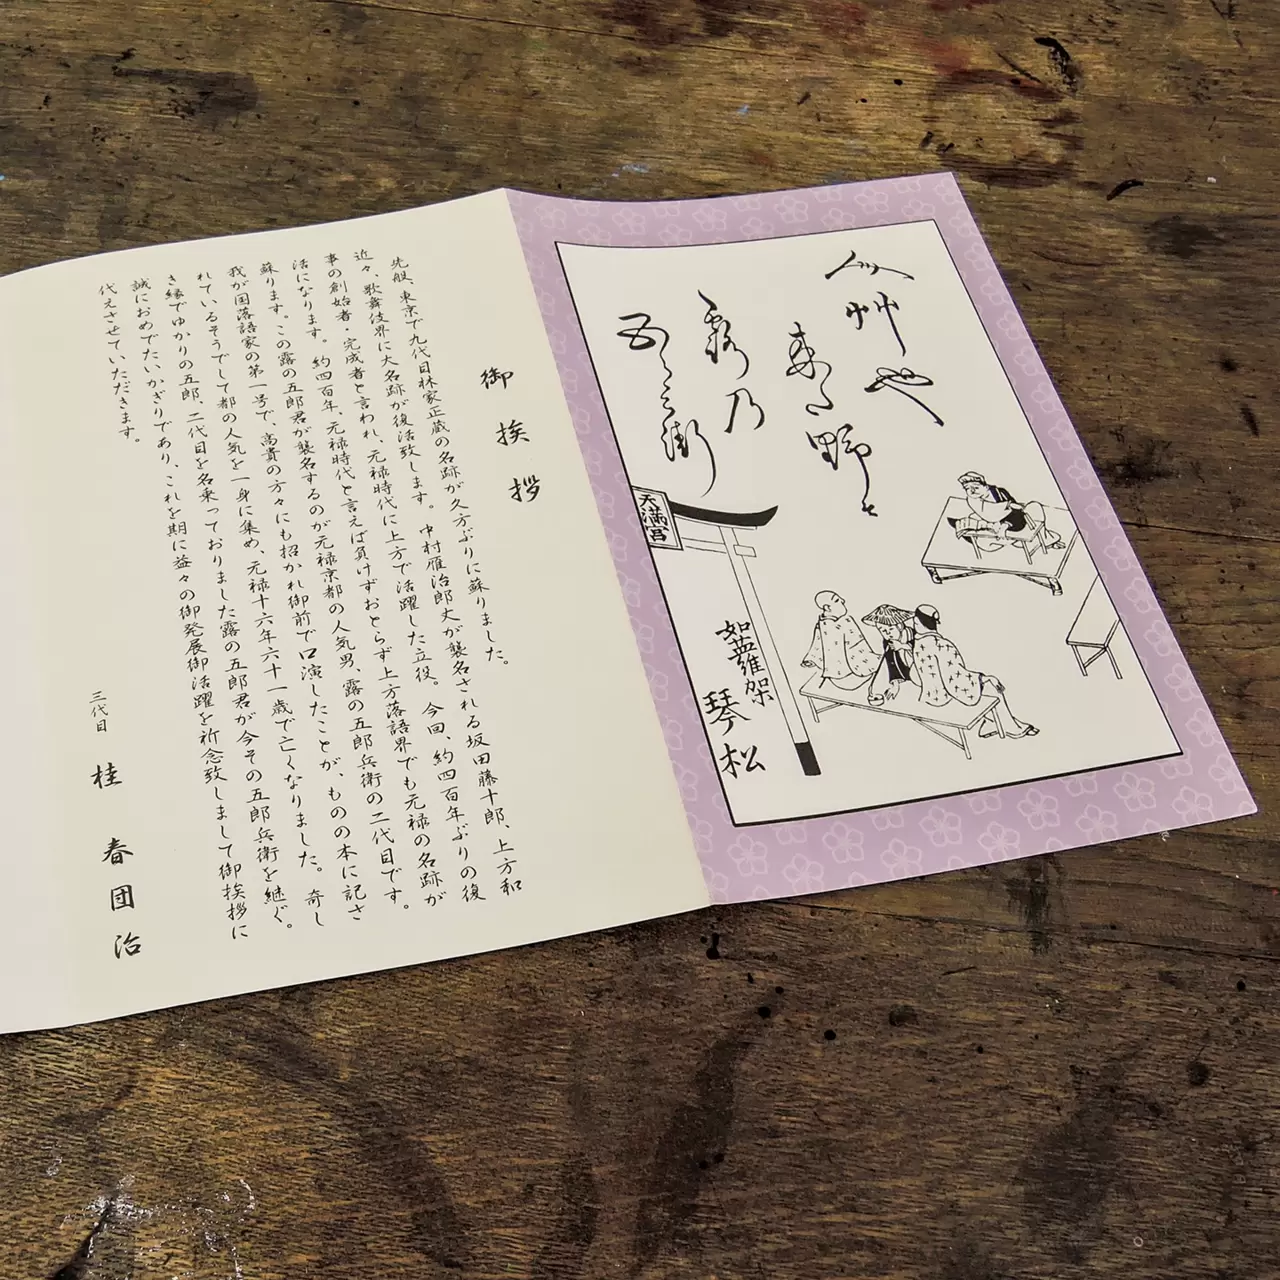 人艸也
来る野せ
露乃
五郎兵衛
天満宮
如蓋維架
琴松
御挨拶
先般、東京で九代目林家正蔵の名跡が久方ぶりに蘇りました。
近々、歌舞伎界に大名跡が復活致します。中村雁治郎丈が襲名される坂田藤十郎、上方和
事の創始者・完成者と言われ、元禄時代に上方で活躍した立役。今回、約四百年ぶりの復
活になります。約四百年、元禄時代と言えば負けずおとらず上方落語界でも元禄の名跡が
蘇ります。この露の五郎君が襲名するのが元禄京都の人気男、露の五郎兵衛の二代目です。
我が国落語家の第一号で、高貴の方々にも招かれ御前で口演したことが、ものの本に記さ
れているそうでして都の人気を一身に集め、元禄十六年六十一歳で亡くなりました。奇し
き縁でゆかりの五郎、二代目を名乗っておりました露の五郎君が今その五郎兵衛を継ぐ。
誠におめでたいかぎりであり、これを期に益々の御発展御活躍を祈念致しまして御挨拶に
代えさせていただきます。
三代目 桂 春団治